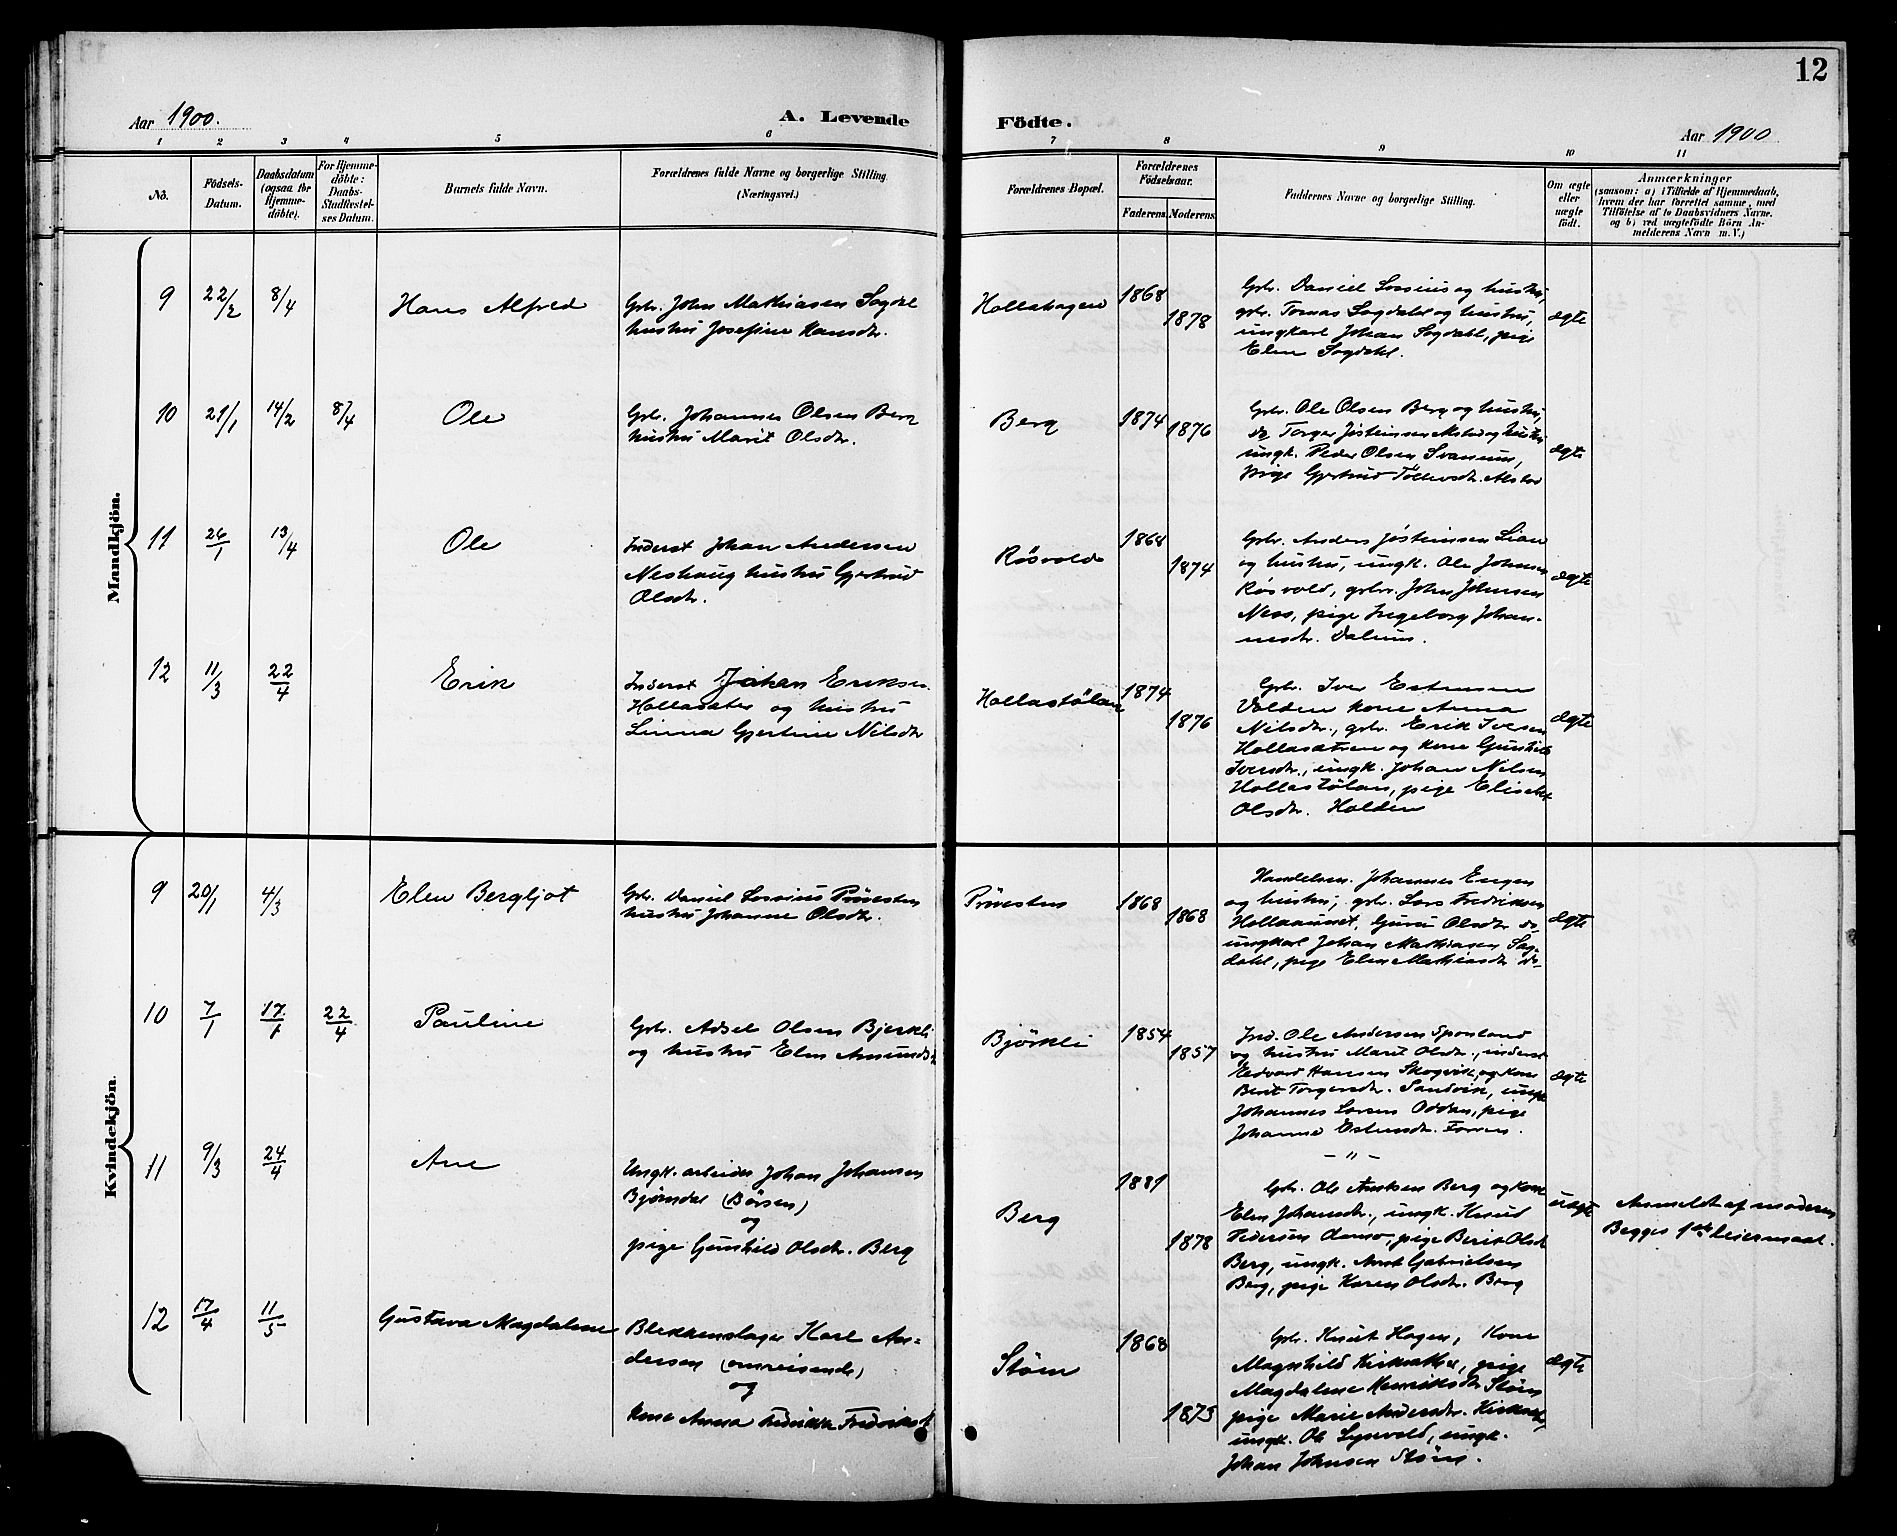 12
Aar 1900.
A. Levende
Födte.
Aar 1900
1 2 3 4 5 6 7 8 9 10 11
No.
Födsels-
Datum.
Daabsdatum
(ogsaa for
Hjemme-
döbte).
For Hjemme-
döbte:
Daabs-
Stadfæstel-
ses Datum.
Barnets fulde Navn.
Forældrenes fulde Navne og borgerlige Stilling
(Næringsvei.)
Forældrenes Bopæl.
Forældrenes
Födselsaar.
Faderens
Moderens
Faddernes Navne og borgerlige Stilling.
Om ægte
eller
uægte
födt.
Anmærkninger
(saasom: a) i Tilfælde af Hjemmedaab,
hvem der har forrettet samme, med
Tilföielse af to Daabsvidners Navne.
og b) ved uægtefödte Börn An-
melderens Navn m. V.)
Mandkjön.
9 22/2 8/4 Hans Alfred
Gbr. John Mathiasen Sogdal
hustru Josefine Hansdtr.
Hollahagen 1868 1878
Gbr. Daniel Lossius og hustru,
gbr. Tomas Sogdahl og hustru,
ungkarl Johan Sogdahl, pige
Elen Sogdahl.
ægte
10 21/1 14/2 8/4 Ole
Gbr. Johannes Olsen Berg
hustru Marit Olsdtr.
Berg 1874 1876
Gbr. Ole Olsen Berg og hustru,
do Torger Jösteinsen Alstad og hustru
ungk. Peder Olsen Svanem,
pige Gjertrud Tollevsdtr. Alstad
ægte
11 26/1 13/4 Ole
Inderst Johan Andersen
Neshaug hustru Gjertrud
Olsdtr.
Røsvold 1868 1874
Gbr. Anders Jösteinsen Lian
og hustru, ungk. Ole Johnsen
Røsvold, gbr. John Johnsen
Ness, pige Ingeborg Johan-
nesdtr. Dalum.
ægte
12 11/3 22/4 Erik
Inderst Johan Eriksen
Hollasæter og hustru
Linna Gjertine Nilsdtr
Hollastölan 1874 1876
Gbr. Iver Estensen
Volden kone Anna
Nilsdtr., gbr. Erik Iversen
Hollasætren og kone Gunhild
Iversdtr., ungk. Johan Nilsen
Hollastölan, pige Elisabet
Olsdtr. Holden
ægte
Kvindekjön.
9 20/1 4/3 Elen Bergljot
Gbr. Daniel Lossius Prövesten
hustru Johanne Olsdtr.
Prövesten 1868 1868
Handelsm. Johannes Engen
og hustru, gbr. Lars Fredriksen
Hollaaunet, Guru Olsdtr do,
ungkarl Johan Mathiasen Sog-
dahl, pige Elen Mathiasdtr do-
ægte
10 7/1 17/1 22/4 Pauline
Gbr. Adsel Olsen Bjerkli
og hustru Elen Amundsdtr
Bjørkli 1854 1857
Ind. Ole Andersen Sponland
og hustru Marit Olsdtr., inderst
Edvard Hansen Skogvik, og kone
Berit Torgersdtr. Sandvik, ungk
Johannes Larsen Oddan, pige
Johanna Estensdtr. Forren.
ægte
- " -
11 9/3 24/4 Ane
Ungk. arbeider Johan Johansen
Bjørndal (Börsen)
og
pige Gunhild Olsdtr. Berg
Berg 1881 1878
Gbr. Ole Arntsen Berg og kone
Elen Johansdtr., ungk. Knud
Pedersen Oamo, pige Berit Olsdtr
Berg, ungk. Arnt Gabrielsen
Berg, pige Karen Olsdtr. Berg
uægte
Anmeldt af moderen
Begges 1ste leiermaal.
12 17/4 11/5 Gustava Magdalene
Blekkenslager Karl An-
dersen (omreisende)
og
kone Anna Fredrikke Fredriksdtr
Stören 1868 1873
Gbr. Knut Hagen, kone
Magnhild Kirkvold, pige
Magdalene Henriksdtr Stören
pige Marie Andersdtr. Kirkvold,
ungk. Ole Lysvold, ungk.
Johan Johnsen Stören.
ægte